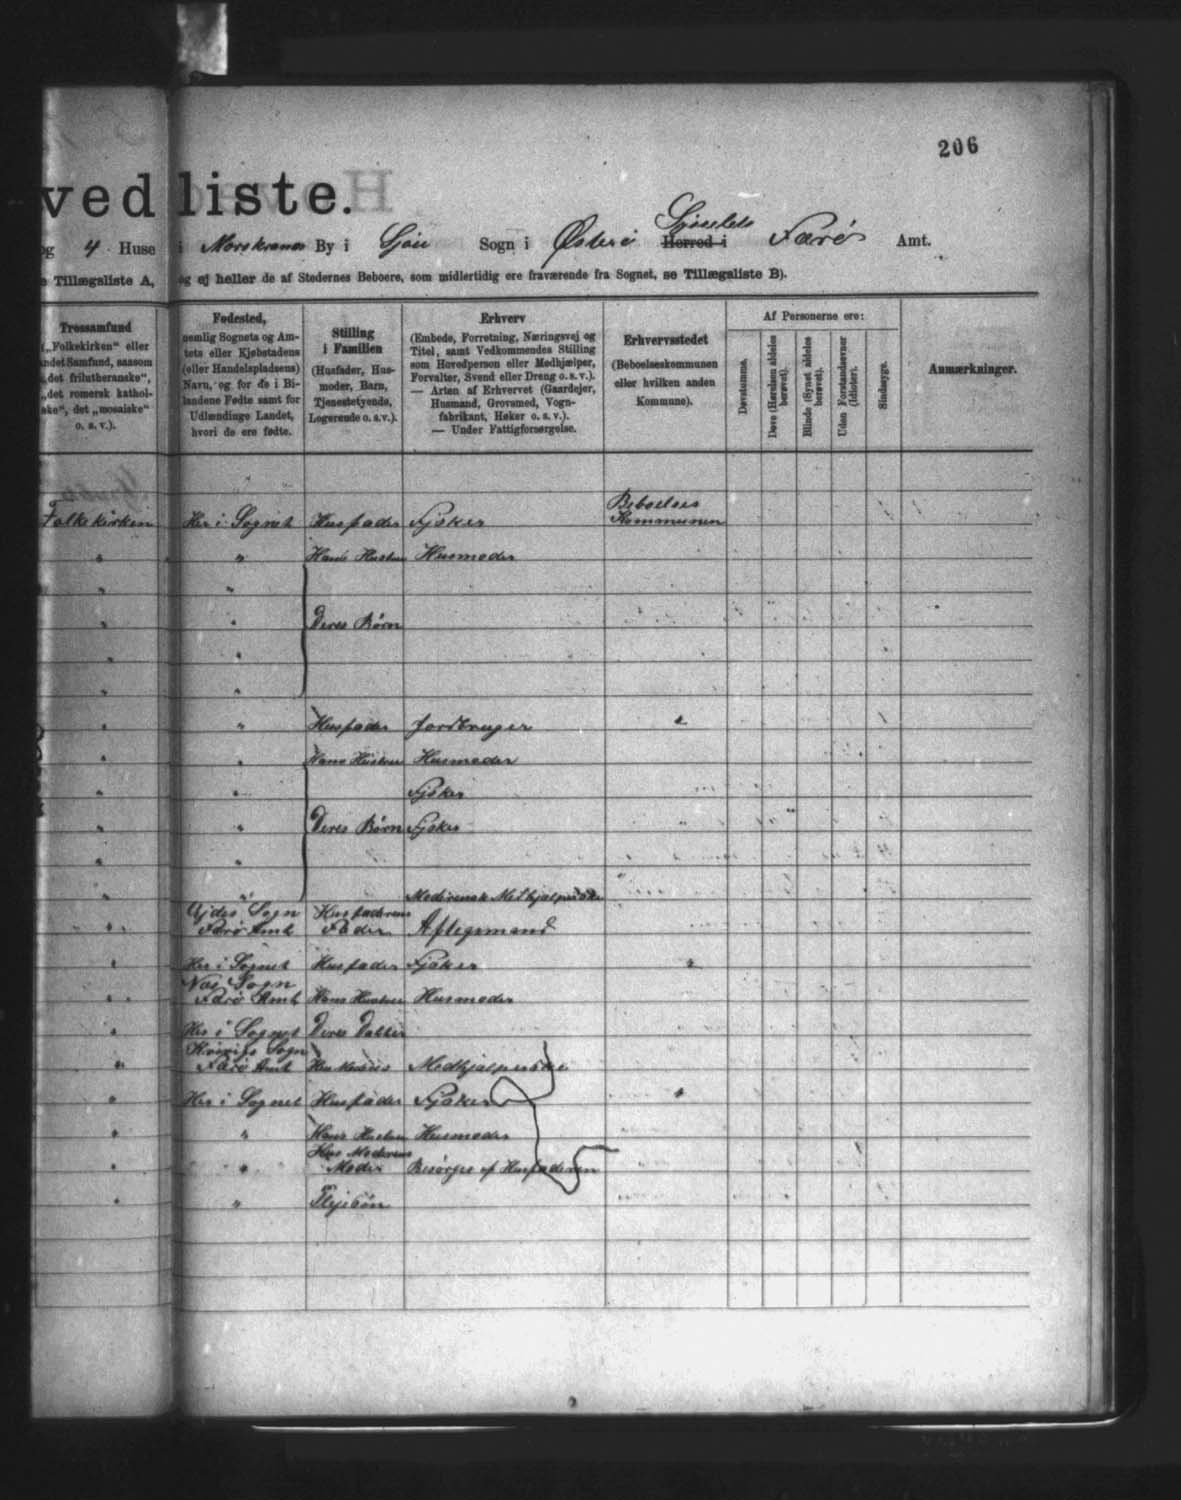 206
vedliste.
og 4 Huse i Norskranes By i Gjøv Sogn i Østerø Herred i Syssels Færø Amt.
e Tillægsliste A, og ej heller de af Stedernes Beboere, som midlertidig ere fraværende fra Sognet, se Tillægsliste B).
Trossamfund
(„Folkekirken“ eller
andet Samfund, saasom
„det frilutheranske“,
„det romersk kathol-
ske“, det „mosaiske“
o. s. v.).
Fødested,
nemlig Sognets og Am-
tets eller Kjøbstadens
(eller Handelspladsens)
Navn, og for de i Bi-
landene Fødte samt for
Udlændinge Landet,
hvori de ere fødte.
Stilling
i Familien
(Husfader, Hus-
moder, Barn,
Tjenestetyende,
Logerende o. s. v.).
Erhverv
(Embede, Forretning, Næringsvej og
Titel, samt Vedkommendes Stilling
som Hovedperson eller Medhjælper,
Forvalter, Svend eller Dreng o. s. v.).
— Arten af Erhvervet (Gaardejer,
Husmand, Grovsmed, Vogn-
fabrikant, Høker o. s. v.).
— Under Fattigforsørgelse.
Erhvervsstedet
(Beboelseskommunen
eller hvilken anden
Kommune).
Af Personerne ere:
Døvstumme.
Døve (Hørelsen aldeles
berøvet).
Blinde (Synet aldeles
berøvet).
Uden Forstandsevner
(Idioter).
Sindssyge.
Anmærkninger.
Folkekirken Her i Sognet Husfader Fisker Beboelses
Kommunen
" " Hans Hustru Husmoder
" "
" " Deres Børn
" "
" "
" " Husfader Jordbruger "
" " Hans Hustru Husmoder
" " Fisker
" " Deres Børn Fisker
" "
" " Moderens Medhjælperske
" Ejdes Sogn Husfaderens
Færø Amt Fader Aftægtsmand
" Her i Sognet Husfader Fisker "
" Næs Sogn
Færø Amt Hans Hustru Husmoder
" Her i Sognet Deres Datter
" Kvivigs Sogn
Færø Amt Medhjælperske
" Her i Sognet Husfader Fisker "
" " Hans Hustru Husmoder
" " Hus Moderens
Moder Besørges af Husfaderen
" " Plejebøn